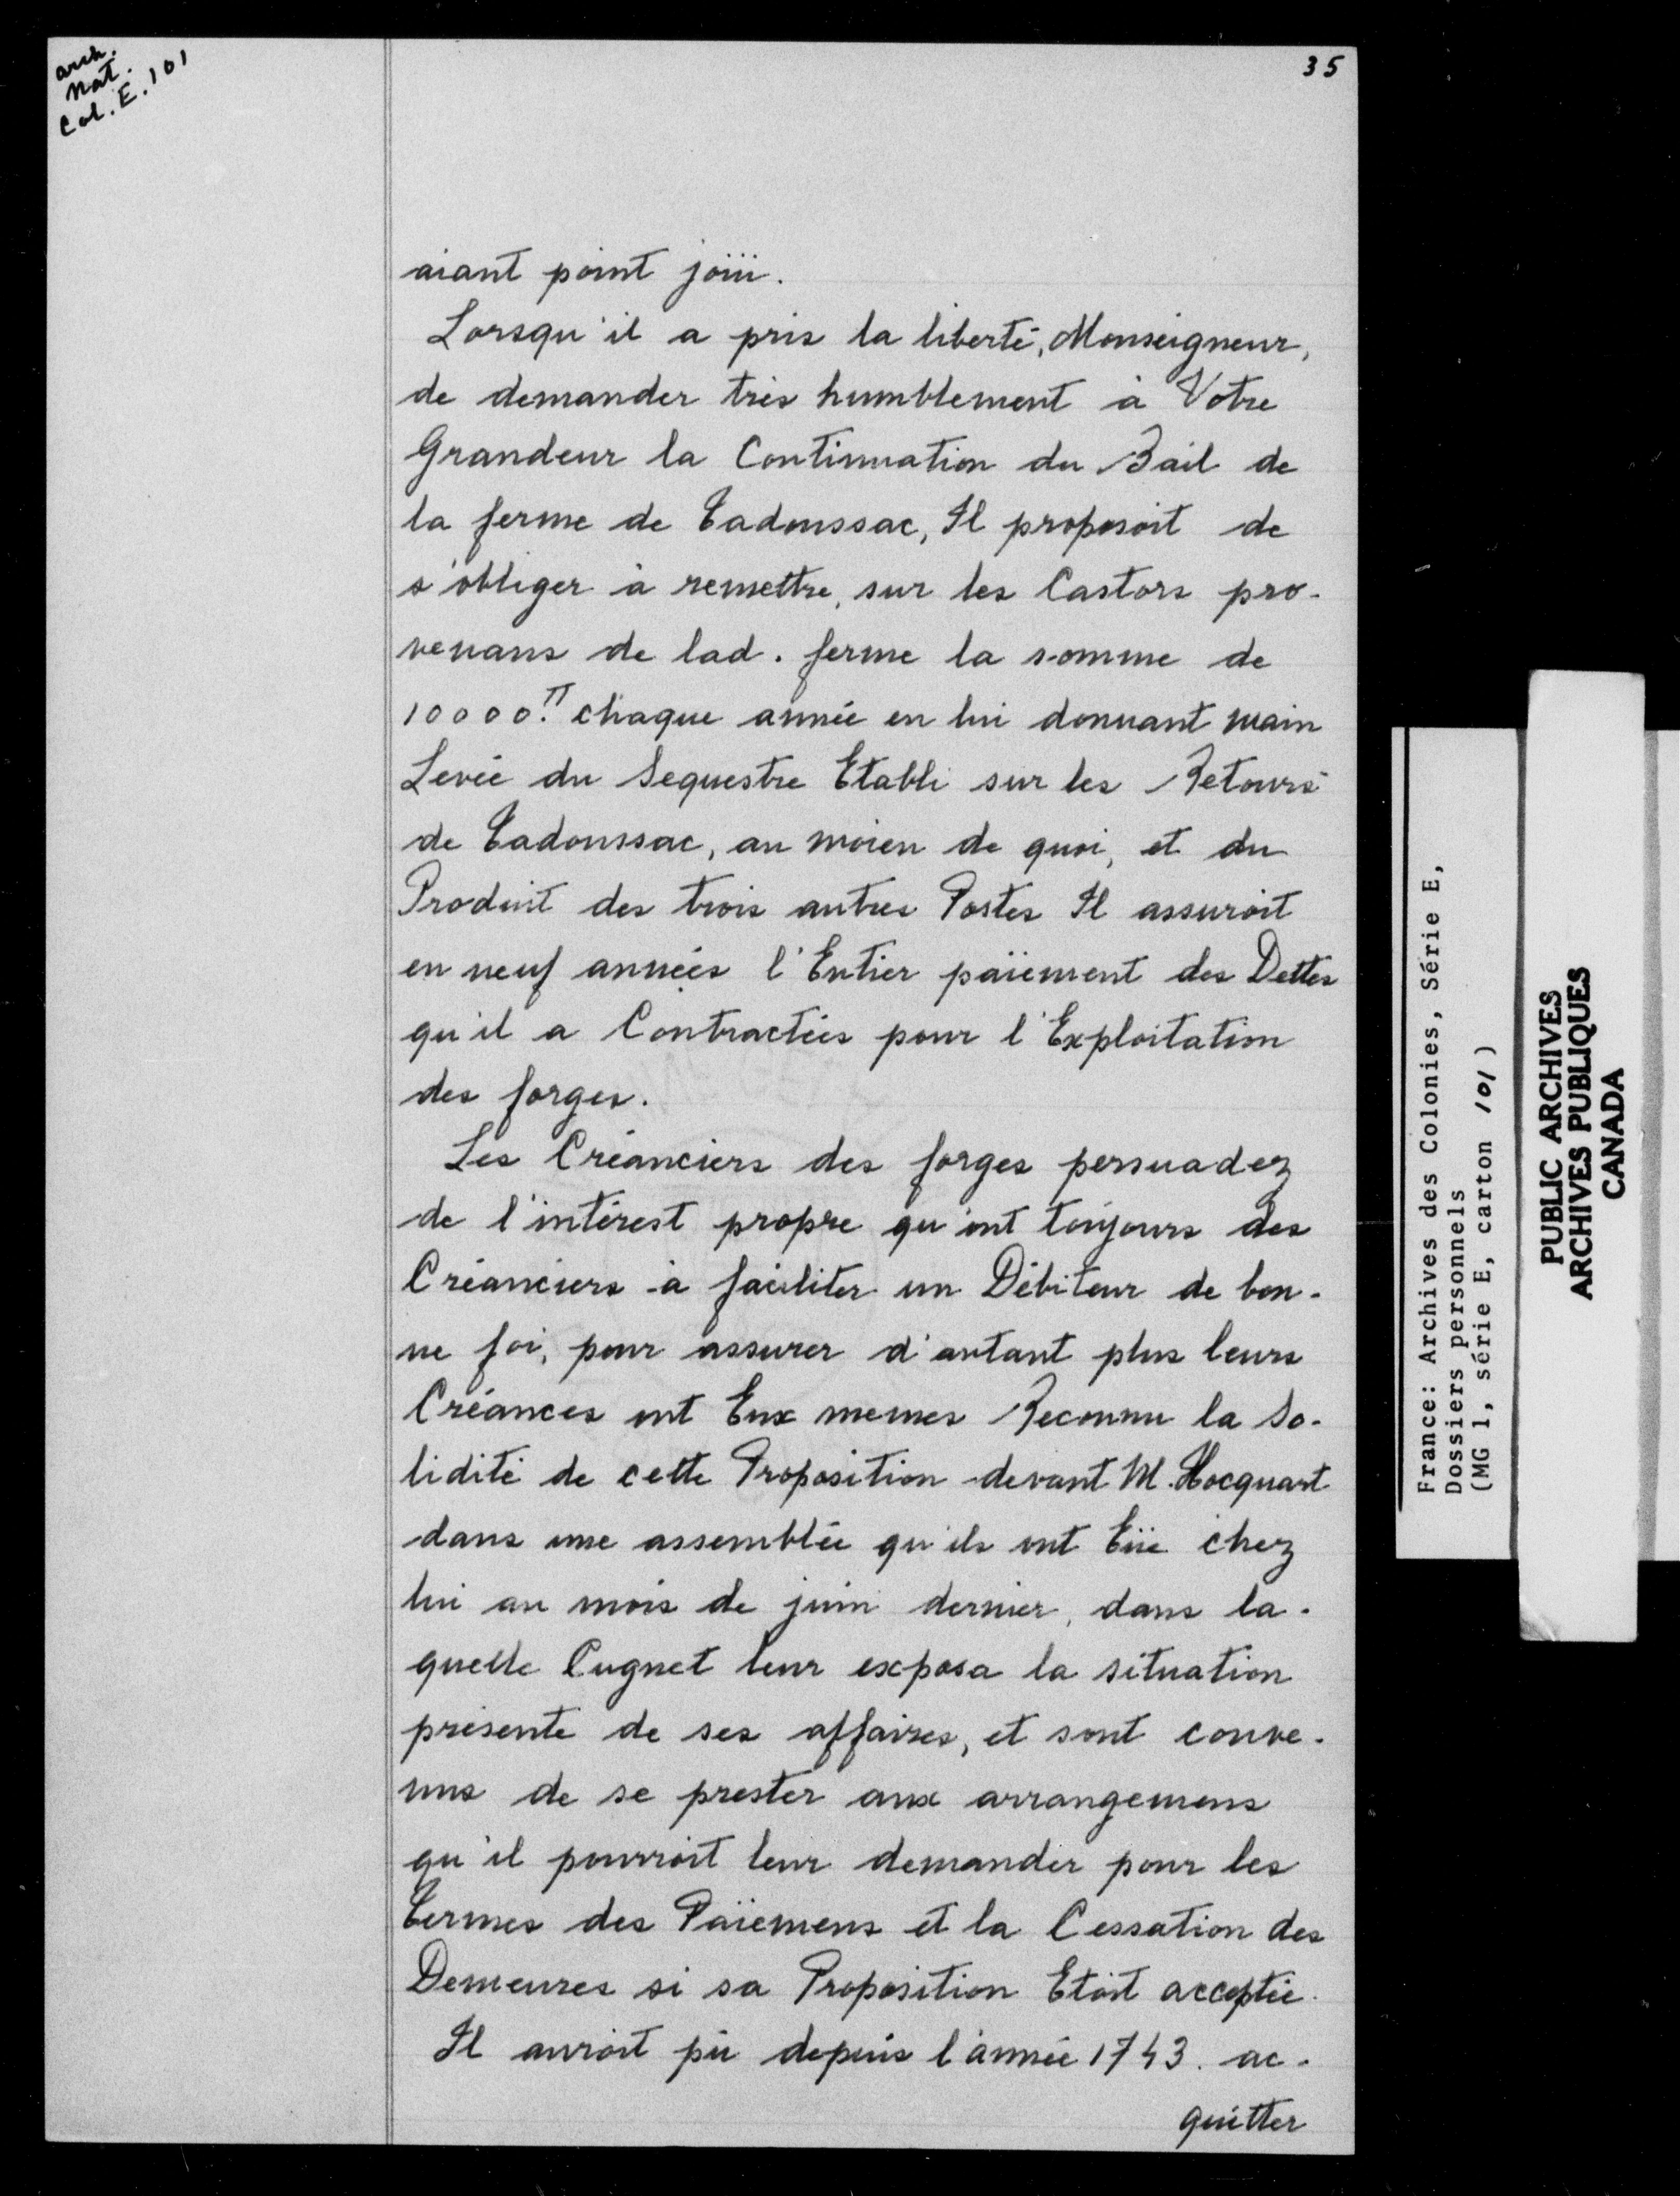 arch.
Nat.
Col. E. 101
35
aiant point joüi.
Lorsqu'il a pris la liberté, Monseigneur,
de demander très humblement à Votre
Grandeur la Continuation du Bail de
la ferme de Tadoussac, Il proposoit de
s'obliger à remettre, sur les Castors pro-
venans de lad. ferme la somme de
10000.ᵗᵗ chaque année en lui donnant main
Levée du Sequestre Etabli sur les Retours
de Tadoussac, au moïen de quoi, et du
Produit des trois autres Postes Il assuroit
en neuf années l'Entier païement des Dettes
qu'il a Contractées pour l'Exploitation
des forges.
Les Créanciers des forges persuadez
de l'intérest propre qu'ont toujours des
Créanciers à faciliter un Débiteur de bon-
ne foi, pour assurer d'autant plus leurs
Créances ont Eux memes Reconnu la So-
lidité de cette Proposition devant M. Hocquart
dans une assemblée qu'ils ont Eüe chez
lui au mois de juin dernier, dans la-
quelle Cugnet leur exposa la situation
présente de ses affaires, et sont conve-
nus de se prester aux arrangemens
qu'il pourroit leur demander pour les
Termes des Païemens et la Cessation des
Demeures si sa Proposition Etoit acceptée.
Il auroit pû depuis l'année 1743. ac-
quitter
France: Archives des Colonies, Série E,
Dossiers personnels
(MG 1, série E, carton 101)
PUBLIC ARCHIVES
ARCHIVES PUBLIQUES
CANADA